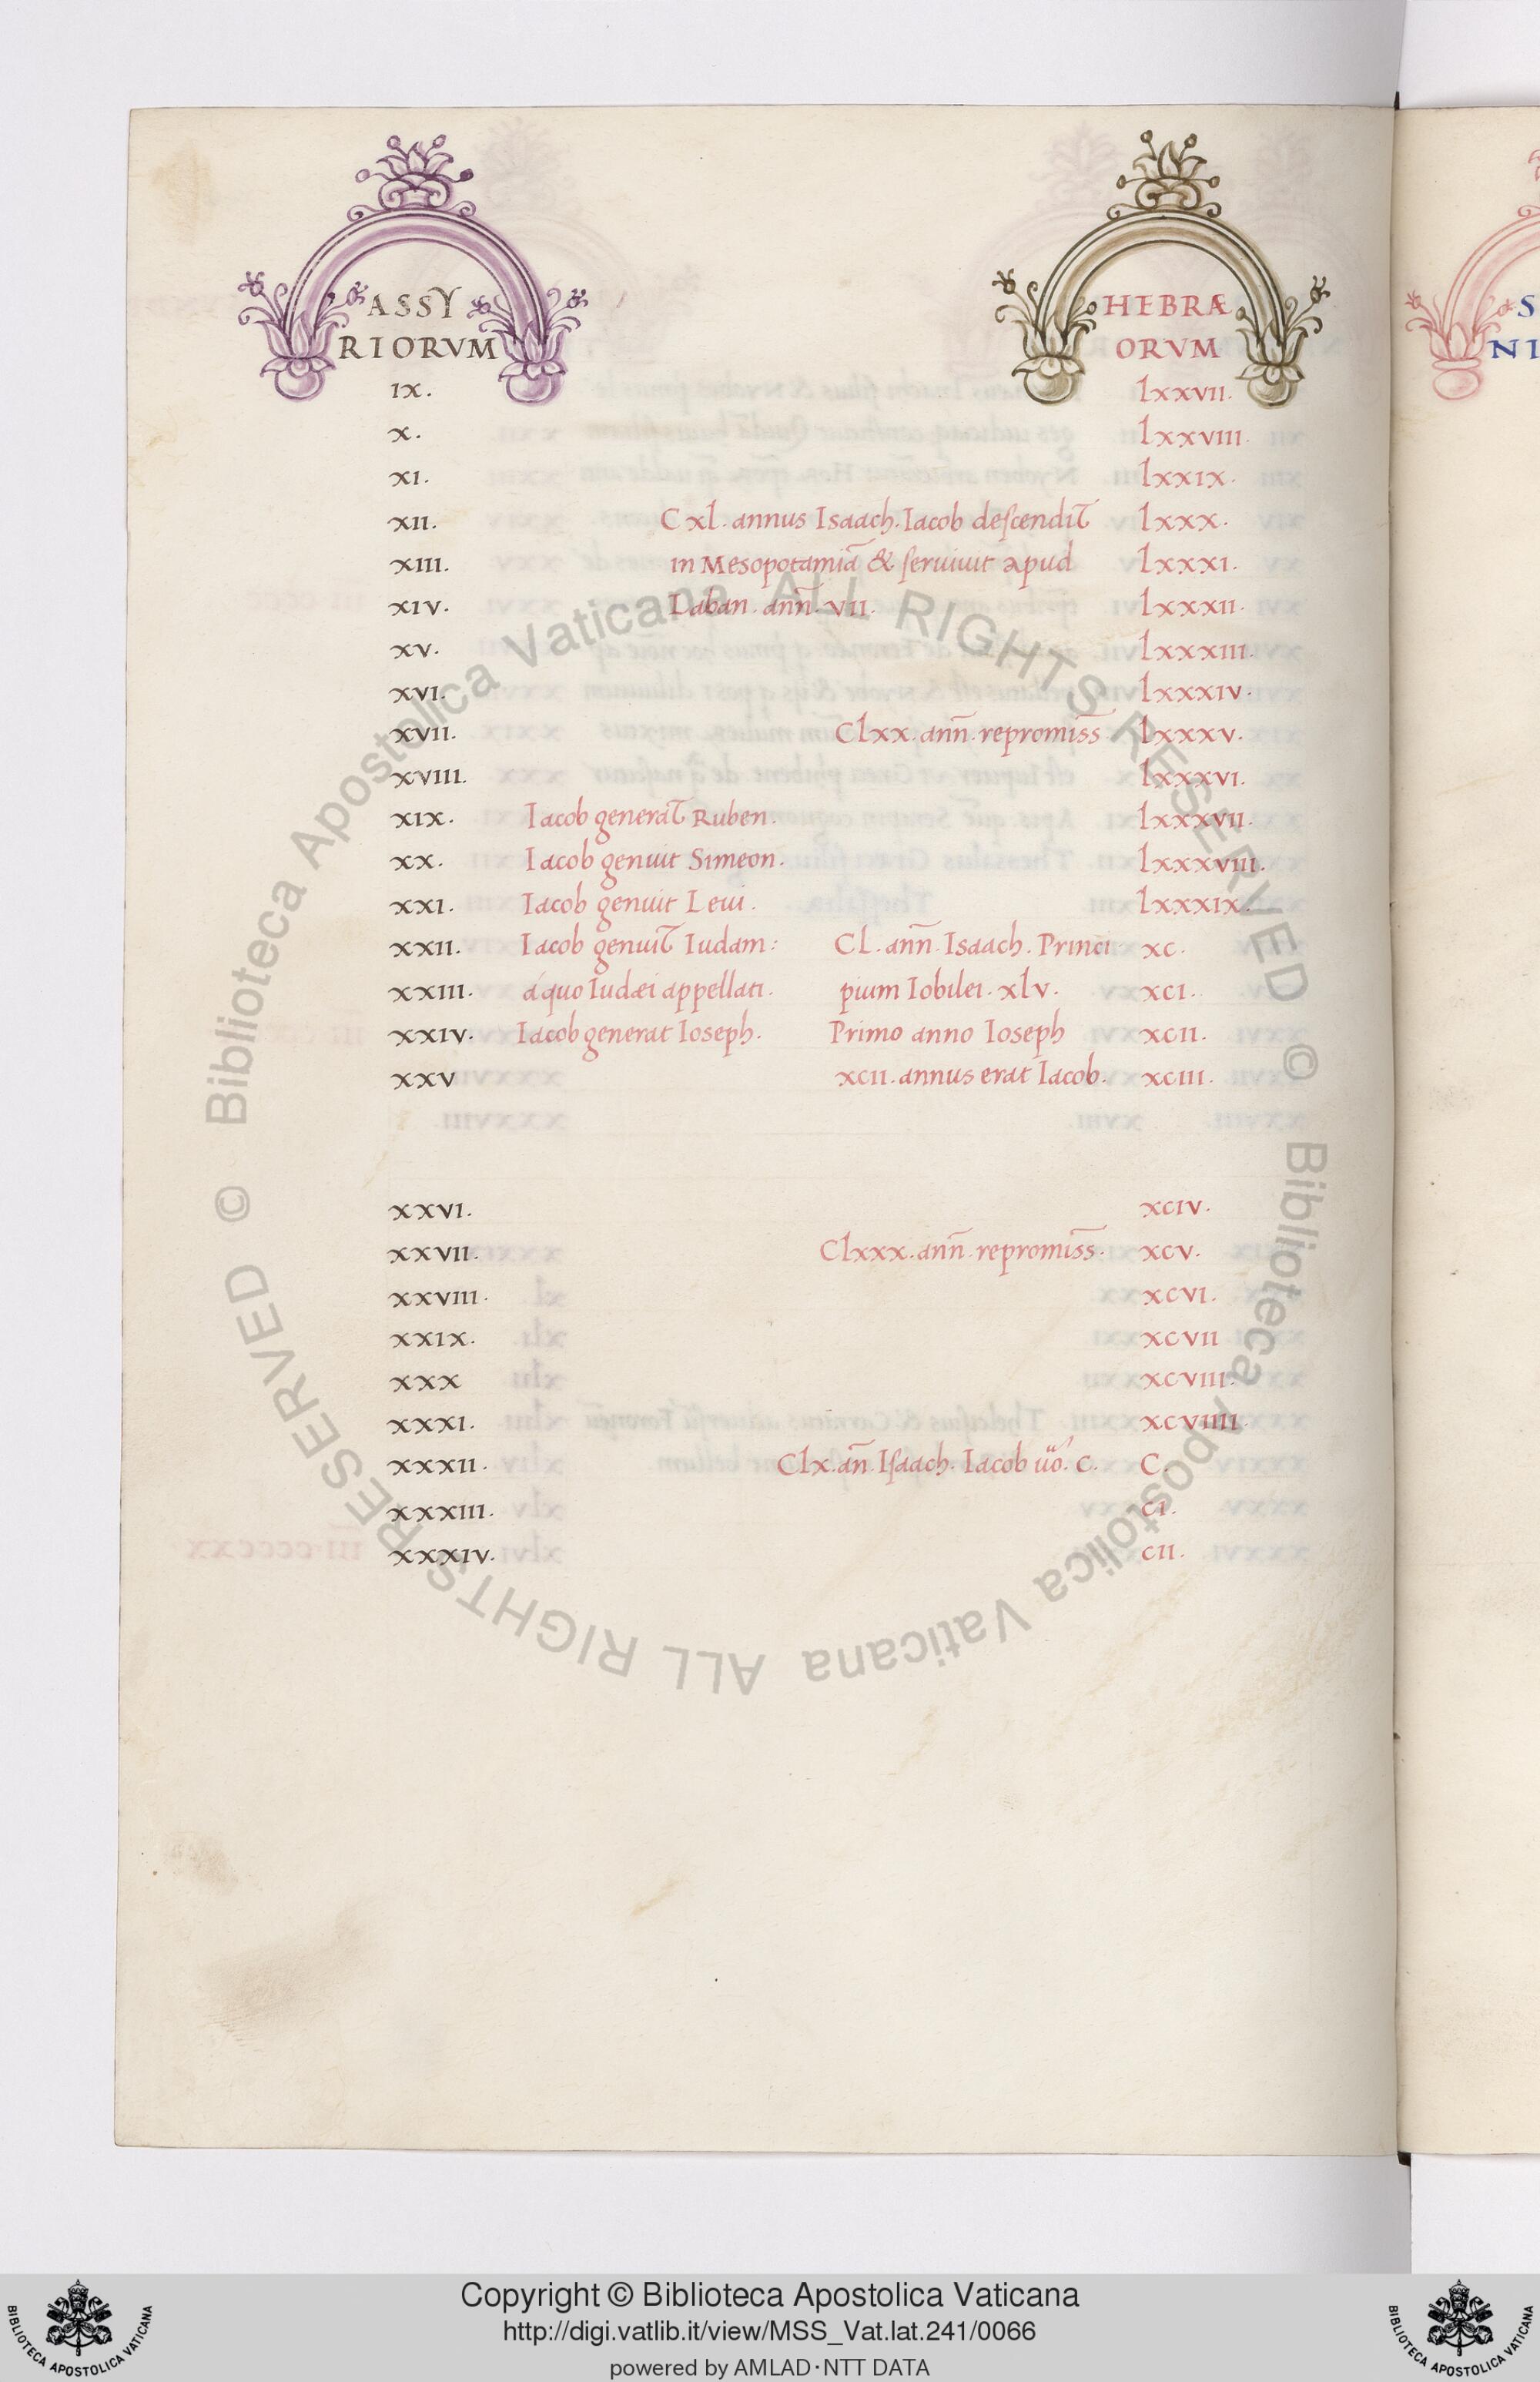 ASSY HEBRÆ
RIORVM ORVM
IX. lxxvii.
X. lxxviii.
XI. lxxix.
XII. Cxl. annus Isaach. Iacob descendit lxxx.
XIII. in Mesopotamiā & seruiuit apud lxxxi.
XIV. Laban. ann̄. VII. lxxxii.
XV. lxxxiii.
XVI. lxxxiv.
XVII. Clxx. ann̄. repromiss̄ lxxxv.
XVIII. lxxxvi.
XIX. Iacob generat Ruben. lxxxvii.
XX. Iacob genuit Simeon. lxxxviii.
XXI. Iacob genuit Leui. lxxxix.
XXII. Iacob genuit Iudam: Cl. ann̄. Isaach. Princi xc.
XXIII. áquo Iudæi appellati. pium Iobilei. xlv. xci.
XXIV. Iacob generat Ioseph. Primo anno Ioseph xcii.
XXV xcii. annus erat Iacob. xciii.
XXVI. xciv.
XXVII. Clxxx. ann̄. repromiss̄. xcv.
XXVIII. xcvi.
XXIX. xcvii
XXX xcviii.
XXXI. xcviiii.
XXXII. Clx. an̄. Isaach. Iacob ūo. c. C.
XXXIII. ci.
XXXIV. cii.
S
NI
© Biblioteca Apostolica Vaticana ALL RIGHTS RESERVED
© Biblioteca Apostolica Vaticana ALL RIGHTS RESERVED
Copyright © Biblioteca Apostolica Vaticana
http://digi.vatlib.it/view/MSS_Vat.lat.241/0066
powered by AMLAD·NTT DATA
BIBLIOTECA APOSTOLICA VATICANA
BIBLIOTECA APOSTOLICA VATICANA